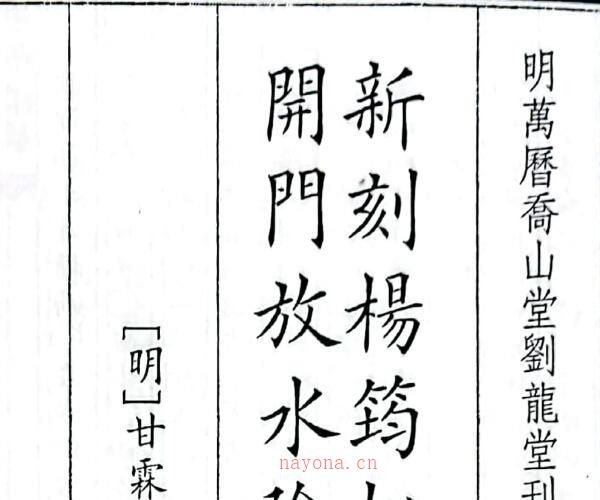 明萬曆喬山堂劉龍堂刊
新刻楊筠
開門放水
[明]甘霖
nayona.cn